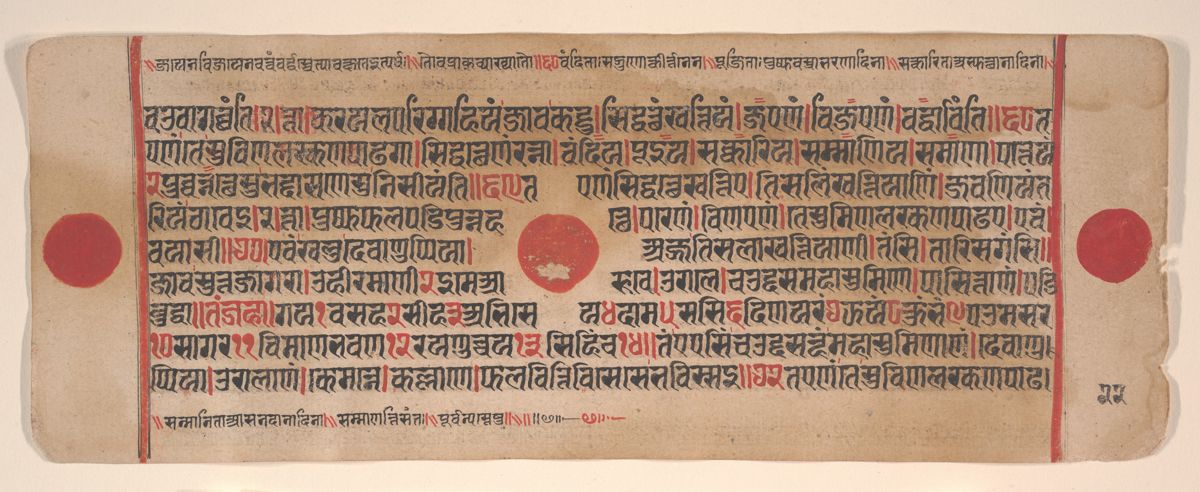 वंदिताः सद्गुणोत्कीर्त्तनेन॥पूजिताः पुष्पवस्त्राभरणादिना॥सत्कारिताः
वउवागच्छंति।२त्ता।करयलपरिग्गहियं जावकट्टु।सिद्धत्थं खत्तियं।जएणं।विजएणं।वद्धाविंति॥६७त
एणं।तेसुविणलक्खणपाढगा।सिद्धत्थेणं रन्ना।वंदिय।पूइय।सक्कारिय।सम्माणिया।समाणा।पत्तेयं
२पुव्वन्नत्थेसु भद्दासणेसु निसीयंति॥६८त एणंसिद्धत्थेखत्तिए।तिसलंखत्तियाणिं।जवणियंत
रियंठावेइ।२त्ता।पुप्फफलपडिपुन्नह त्थे।परेणं।विणएणं।तेसुमिणलक्खणपाढए।एवं
वयासी॥७० एवंखलुदेवाणुप्पिया। अज्जतिसलाखत्तियाणी।तंसि।तारिसगंसि॥
जावसुत्तजागरा।उहीरमाणी२इमेआ रूवे।उराले।चउद्दसमहासुमिणे।पासित्ताणं।पडि
बुद्धा॥तंजहा॥गय१वसह२सीह३अभिसे य४दाम५ससि६दिणयरं७झयं८कुंभं९पउमसर
१०सागर११विमाणभवण१२रयणुच्चय१३सिहिंच१४॥तंएएसिंचउद्दसन्हंमहासुमिणाणं।देवाणु
प्पिया।उरालाणं।केमन्ने।कल्लाणे।फलवित्तिविसेसेभविस्सइ॥७२तएणंतेसुविणलक्खणपाढ।
सन्मानिताआसनदानादिना॥सम्माणत्तिसंतः॥पूर्वन्यस्तेषु॥
२२